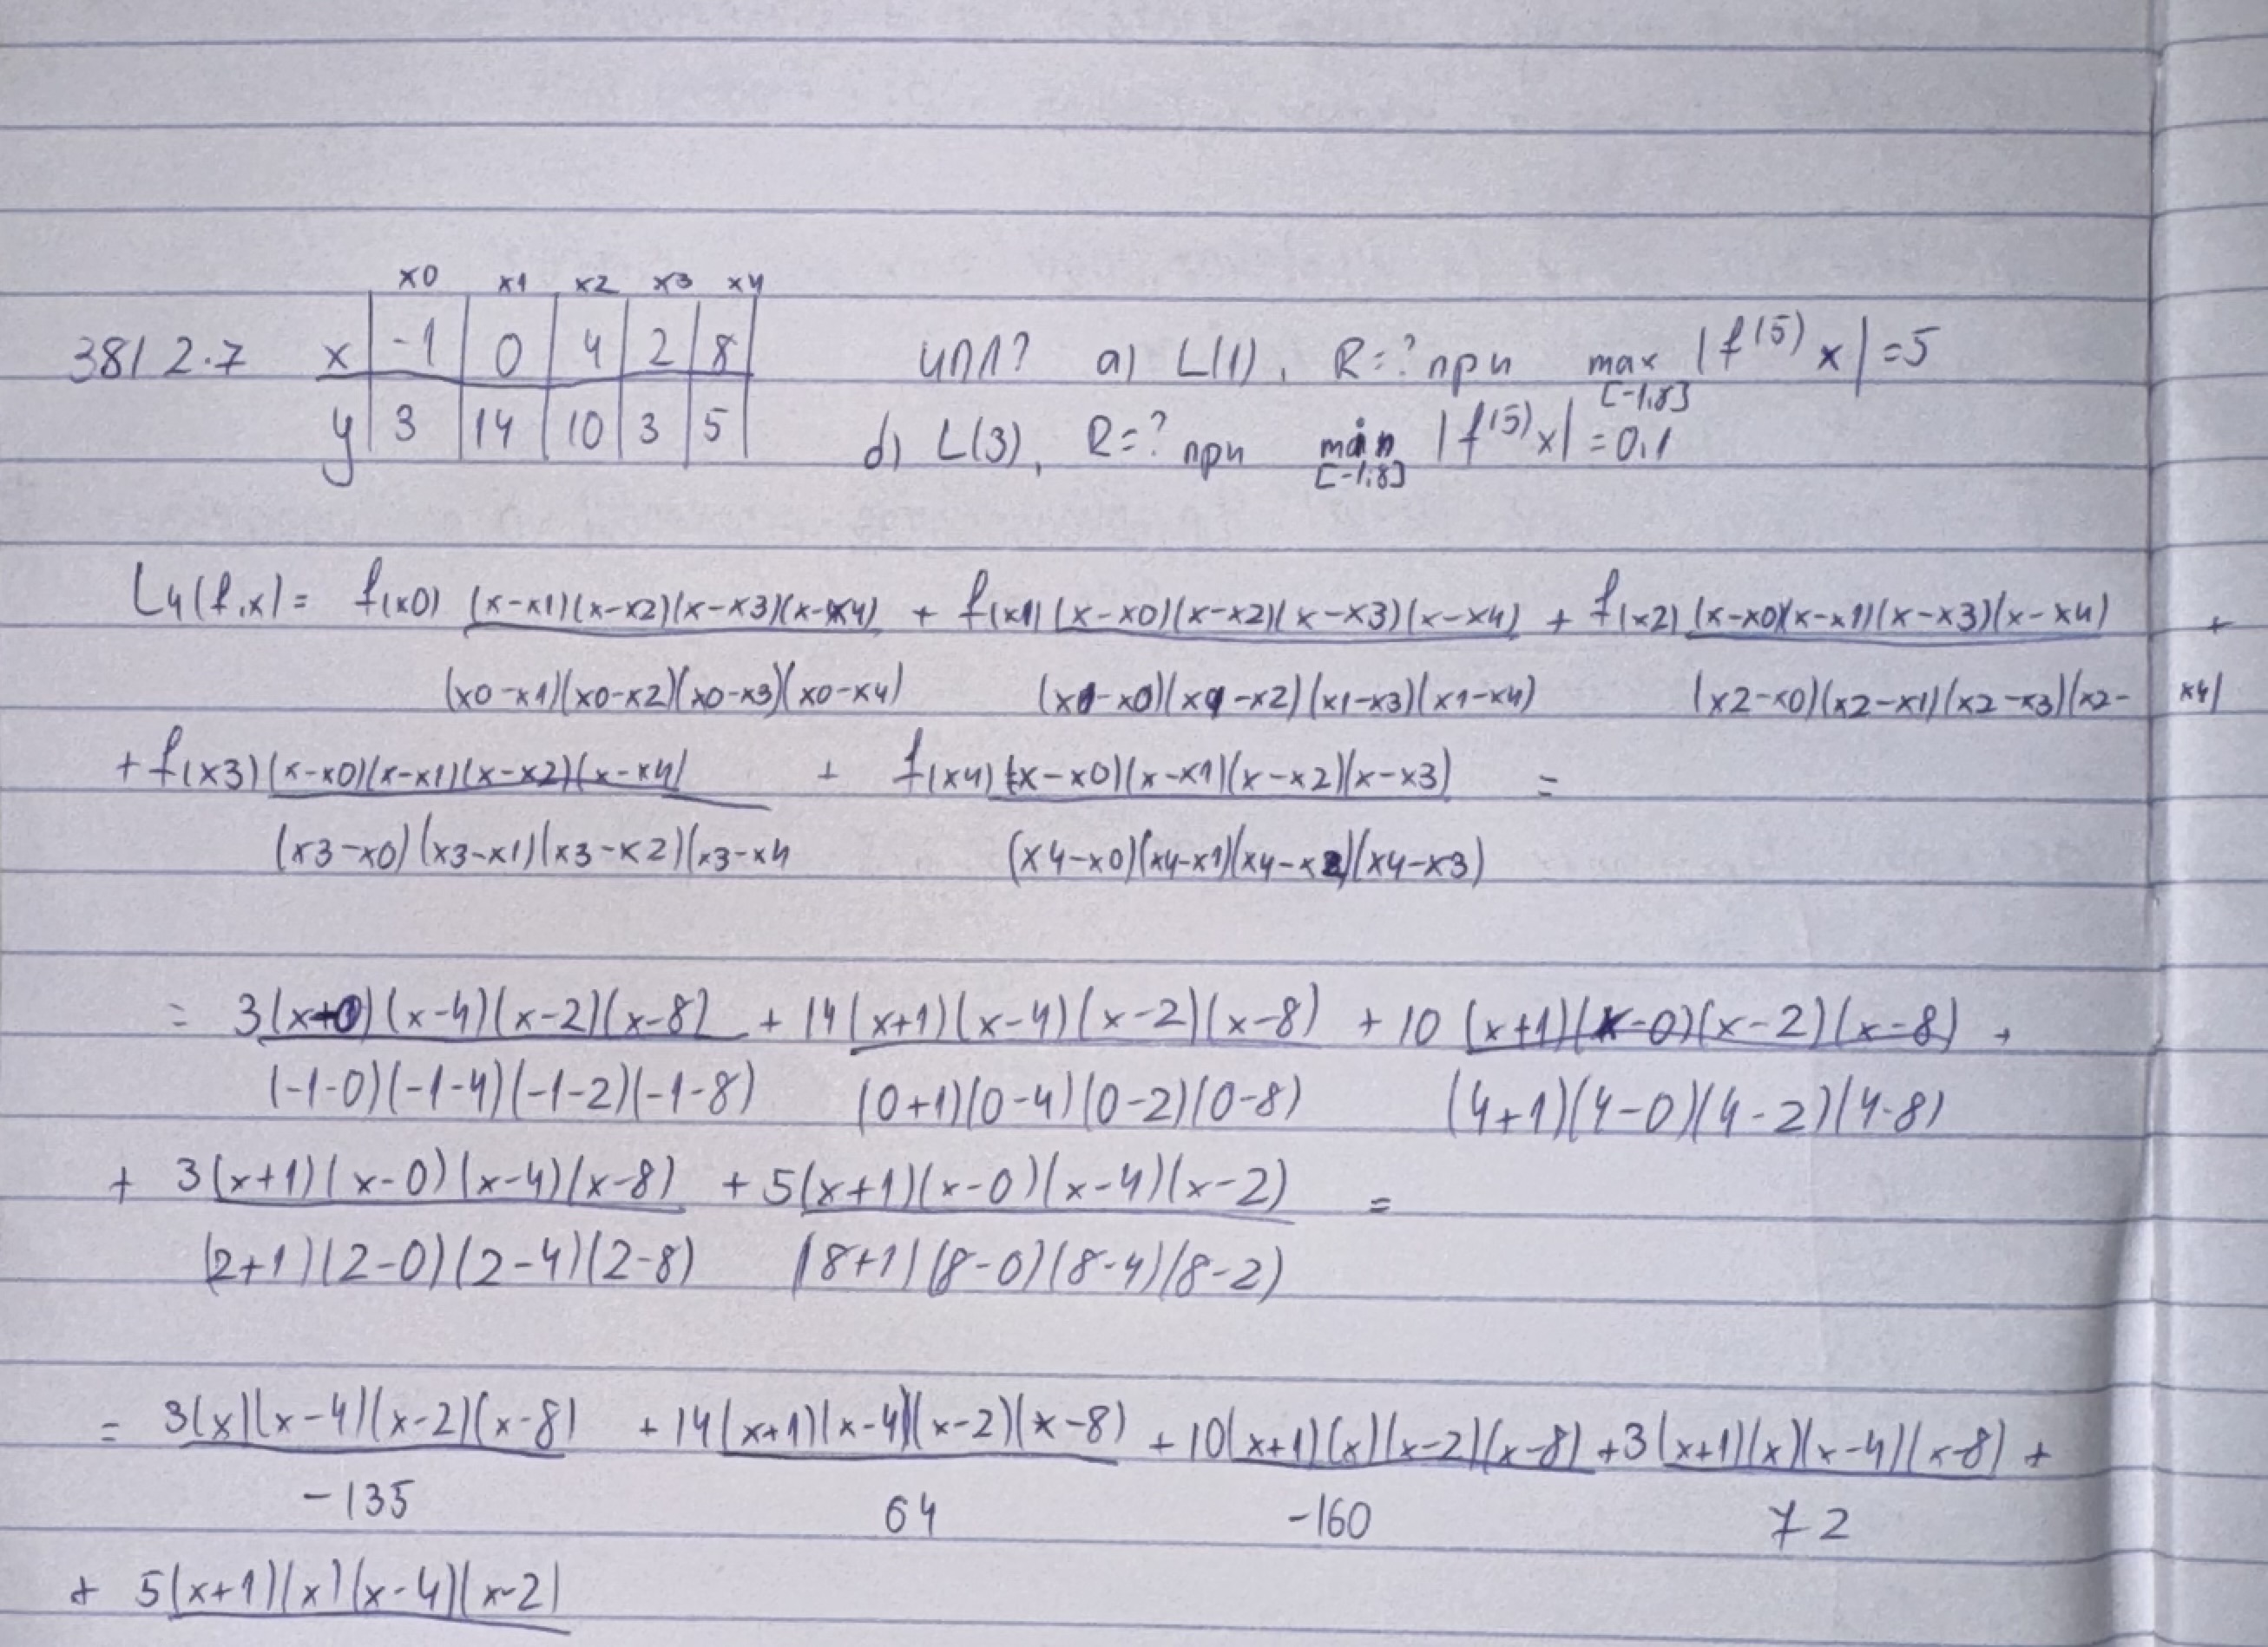 x0 x1 x2 x3 x4
38/ 2.7 x -1 0 4 2 8 ИПЛ? a) L(1), R=? при max |f⁽⁵⁾x|=5
[-1;8]
y 3 14 10 3 5 d) L(3), R=? при min |f⁽⁵⁾x|=0.1
[-1;8]
L4(f,x)= f(x0) (x-x1)(x-x2)(x-x3)(x-x4) + f(x1) (x-x0)(x-x2)(x-x3)(x-x4) + f(x2) (x-x0)(x-x1)(x-x3)(x-x4) +
(x0-x1)(x0-x2)(x0-x3)(x0-x4) (x1-x0)(x1-x2)(x1-x3)(x1-x4) (x2-x0)(x2-x1)(x2-x3)(x2-x4)
+ f(x3) (x-x0)(x-x1)(x-x2)(x-x4) + f(x4) (x-x0)(x-x1)(x-x2)(x-x3) =
(x3-x0)(x3-x1)(x3-x2)(x3-x4 (x4-x0)(x4-x1)(x4-x2)(x4-x3)
= 3(x+0)(x-4)(x-2)(x-8) + 14(x+1)(x-4)(x-2)(x-8) + 10 (x+1)(x-0)(x-2)(x-8) +
(-1-0)(-1-4)(-1-2)(-1-8) (0+1)(0-4)(0-2)(0-8) (4+1)(4-0)(4-2)(4-8)
+ 3(x+1)(x-0)(x-4)(x-8) + 5(x+1)(x-0)(x-4)(x-2) =
(2+1)(2-0)(2-4)(2-8) (8+1)(8-0)(8-4)(8-2)
= 3(x)(x-4)(x-2)(x-8) + 14(x+1)(x-4)(x-2)(x-8) + 10(x+1)(x)(x-2)(x-8) + 3(x+1)(x)(x-4)(x-8) +
-135 64 -160 72
+ 5(x+1)(x)(x-4)(x-2)